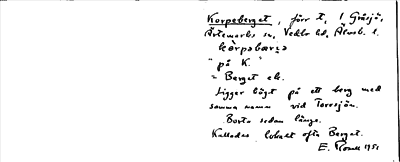 Korpeberget, förr t, 1 Gräsjö,
Ärtemarks sn, Vedbo hd, Älvsb. l.
kòrpəbærjə
"på K."
~ Berget ek.
Ligger högt på ett berg med
samma namn vid Torrsjön.
Borta sedan länge.
Kallades lokalt ofta Berget.
E. 1951